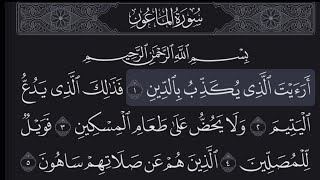 سُورَةُ الْمَاعُونِ
بِسْمِ اللَّهِ الرَّحْمَٰنِ الرَّحِيمِ
أَرَءَيْتَ الَّذِي يُكَذِّبُ بِالدِّينِ ١ فَذَٰلِكَ الَّذِي يَدُعُّ
الْيَتِيمَ ٢ وَلَا يَحُضُّ عَلَىٰ طَعَامِ الْمِسْكِينِ ٣ فَوَيْلٌ
لِّلْمُصَلِّينَ ٤ الَّذِينَ هُمْ عَن صَلَاتِهِمْ سَاهُونَ ٥